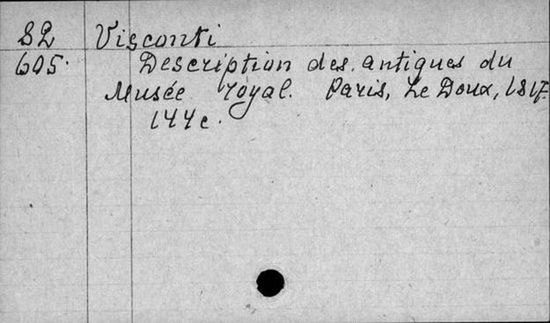 82 Visconti
605. Description des antiques du
Musée royal. Paris, Le Doux, 1817
144 c.